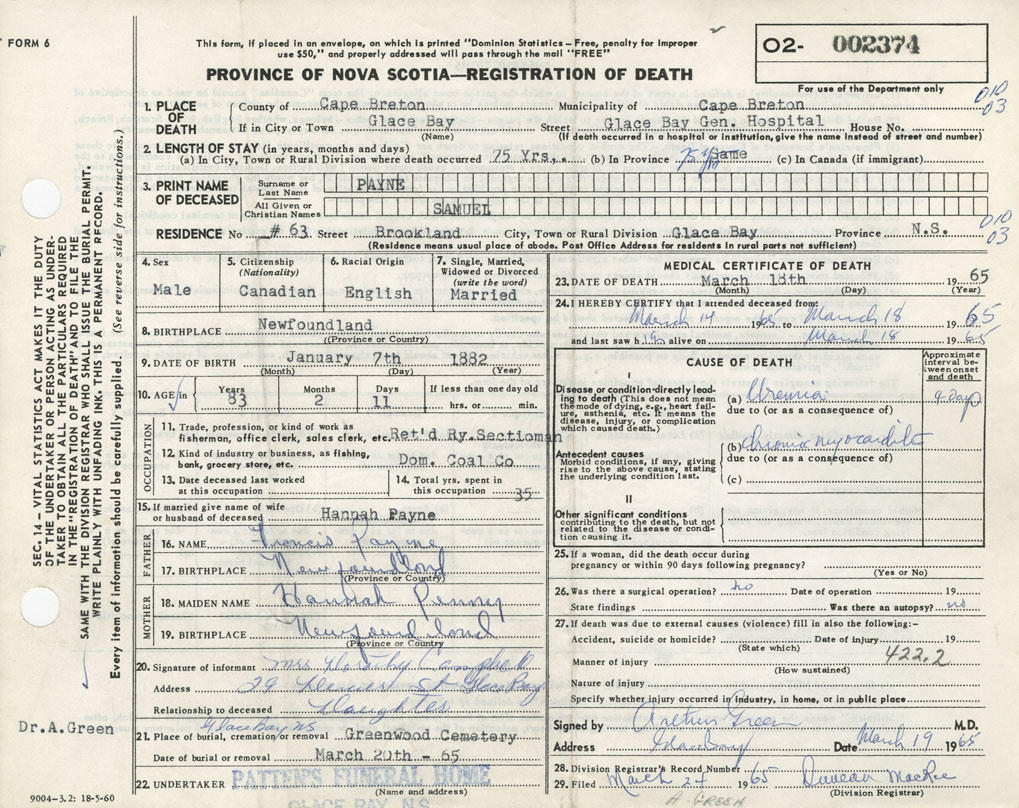 FORM 6
This form, if placed in an envelope, on which is printed "Dominion Statistics — Free, penalty for improper
use $50," and properly addressed will pass through the mail "FREE"
O2- 002374
For use of the Department only
PROVINCE OF NOVA SCOTIA—REGISTRATION OF DEATH
010
03
1. PLACE OF DEATH
County of Cape Breton Municipality of Cape Breton
If in City or Town Glace Bay Street Glace Bay Gen. Hospital House No.
(Name) (If death occurred in a hospital or institution, give the name instead of street and number)
2. LENGTH OF STAY (in years, months and days)
(a) In City, Town or Rural Division where death occurred 75 Yrs., (b) In Province Same (c) In Canada (if immigrant)
3. PRINT NAME OF DECEASED
Surname or Last Name PAYNE
All Given or Christian Names SAMUEL
010
03
RESIDENCE No # 63 Street Brookland City, Town or Rural Division Glace Bay Province N.S.
(Residence means usual place of abode. Post Office Address for residents in rural parts not sufficient)
4. Sex Male
5. Citizenship (Nationality) Canadian
6. Racial Origin English
7. Single, Married, Widowed or Divorced (write the word) Married
8. BIRTHPLACE Newfoundland
(Province or Country)
9. DATE OF BIRTH January 7th 1882
(Month) (Day) (Year)
10. AGE in Years 83 Months 2 Days 11 If less than one day old hrs. or min.
OCCUPATION
11. Trade, profession, or kind of work as
fisherman, office clerk, sales clerk, etc. Ret'd Ry.Sectioman
12. Kind of industry or business, as fishing,
bank, grocery store, etc. Dom. Coal Co
13. Date deceased last worked
at this occupation
14. Total yrs. spent in
this occupation 35
15. If married give name of wife
or husband of deceased Hannah Payne
FATHER
16. NAME Francis Payne
17. BIRTHPLACE Newfoundland
(Province or Country)
MOTHER
18. MAIDEN NAME Hannah Penny
19. BIRTHPLACE Newfoundland
(Province or Country)
20. Signature of informant Mrs Campbell
Address 29 St Glace Bay
Relationship to deceased Daughter
Glace Bay NS
21. Place of burial, cremation or removal Greenwood Cemetery
Date of burial or removal March 20th - 65
22. UNDERTAKER PATTEN'S FUNERAL HOME
(Name and address)
GLACE BAY, N.S.
MEDICAL CERTIFICATE OF DEATH
23. DATE OF DEATH March 18th 1965
(Month) (Day) (Year)
24. I HEREBY CERTIFY that I attended deceased from:
March 14 1965 to March 18 1965
and last saw h im alive on March 18 1965
CAUSE OF DEATH
Approximate interval between onset and death
I
Disease or condition directly leading to death (This does not mean the mode of dying, e.g., heart failure, asthenia, etc. It means the disease, injury, or complication which caused death.)
(a) Uremia 4 days
due to (or as a consequence of)
Antecedent causes
Morbid conditions, if any, giving rise to the above cause, stating the underlying condition last.
(b) Chronic myocarditis
due to (or as a consequence of)
(c)
II
Other significant conditions
contributing to the death, but not related to the disease or condition causing it.
25. If a woman, did the death occur during
pregnancy or within 90 days following pregnancy?
(Yes or No)
26. Was there a surgical operation? no Date of operation 19
State findings Was there an autopsy? no
27. If death was due to external causes (violence) fill in also the following:-
Accident, suicide or homicide? Date of injury 19
(State which)
422.2
Manner of injury
(How sustained)
Nature of injury
Specify whether injury occurred in industry, in home, or in public place
Signed by Arthur Green M.D.
Address Glace Bay Date March 19 1965
28. Division Registrar's Record Number
29. Filed March 24 1965 Duncan MacRae
(Division Registrar)
A. GREEN
SEC. 14 — VITAL STATISTICS ACT MAKES IT THE DUTY
OF THE UNDERTAKER OR PERSON ACTING AS UNDER-
TAKER TO OBTAIN ALL THE PARTICULARS REQUIRED
IN THE "REGISTRATION OF DEATH" AND TO FILE THE
SAME WITH THE DIVISION REGISTRAR WHO SHALL ISSUE THE BURIAL PERMIT.
WRITE PLAINLY WITH UNFADING INK. THIS IS A PERMANENT RECORD.
Every item of information should be carefully supplied. (See reverse side for instructions.)
Dr.A.Green
9004—3.2: 18-5-60